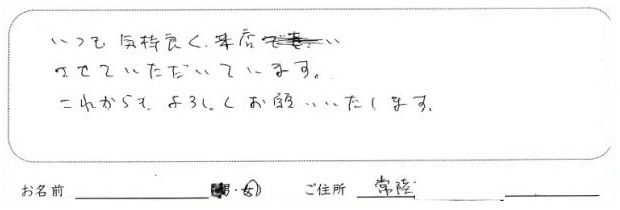 いつも気持良く来店
させていただいています。
これからも よろしくお願いいたします。
お名前 (男・女) ご住所 常陸